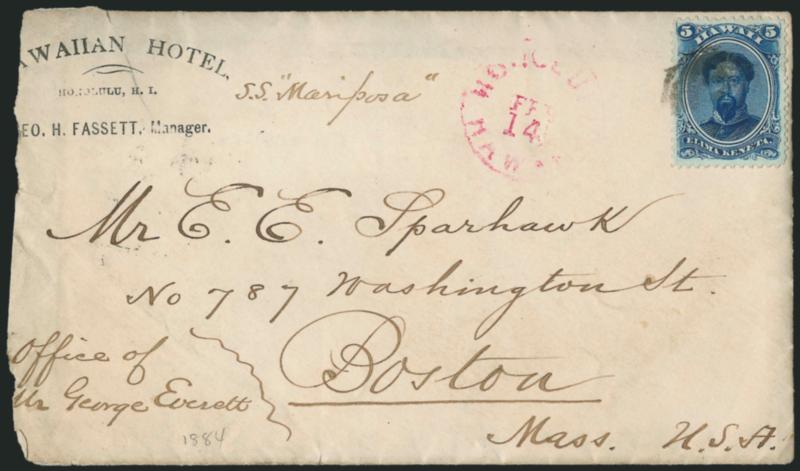 AWAIIAN HOTEL,
HONOLULU, H. I.
EO. H. FASSETT, Manager.
S.S. "Mariposa"
HAW
14
5 HAWAII 5
ELIMA KENETA.
Mr E. E. Sparhawk
No 787 Washington St.
Boston
Mass. U.S.A.
Office of
Mr George Everett
1884